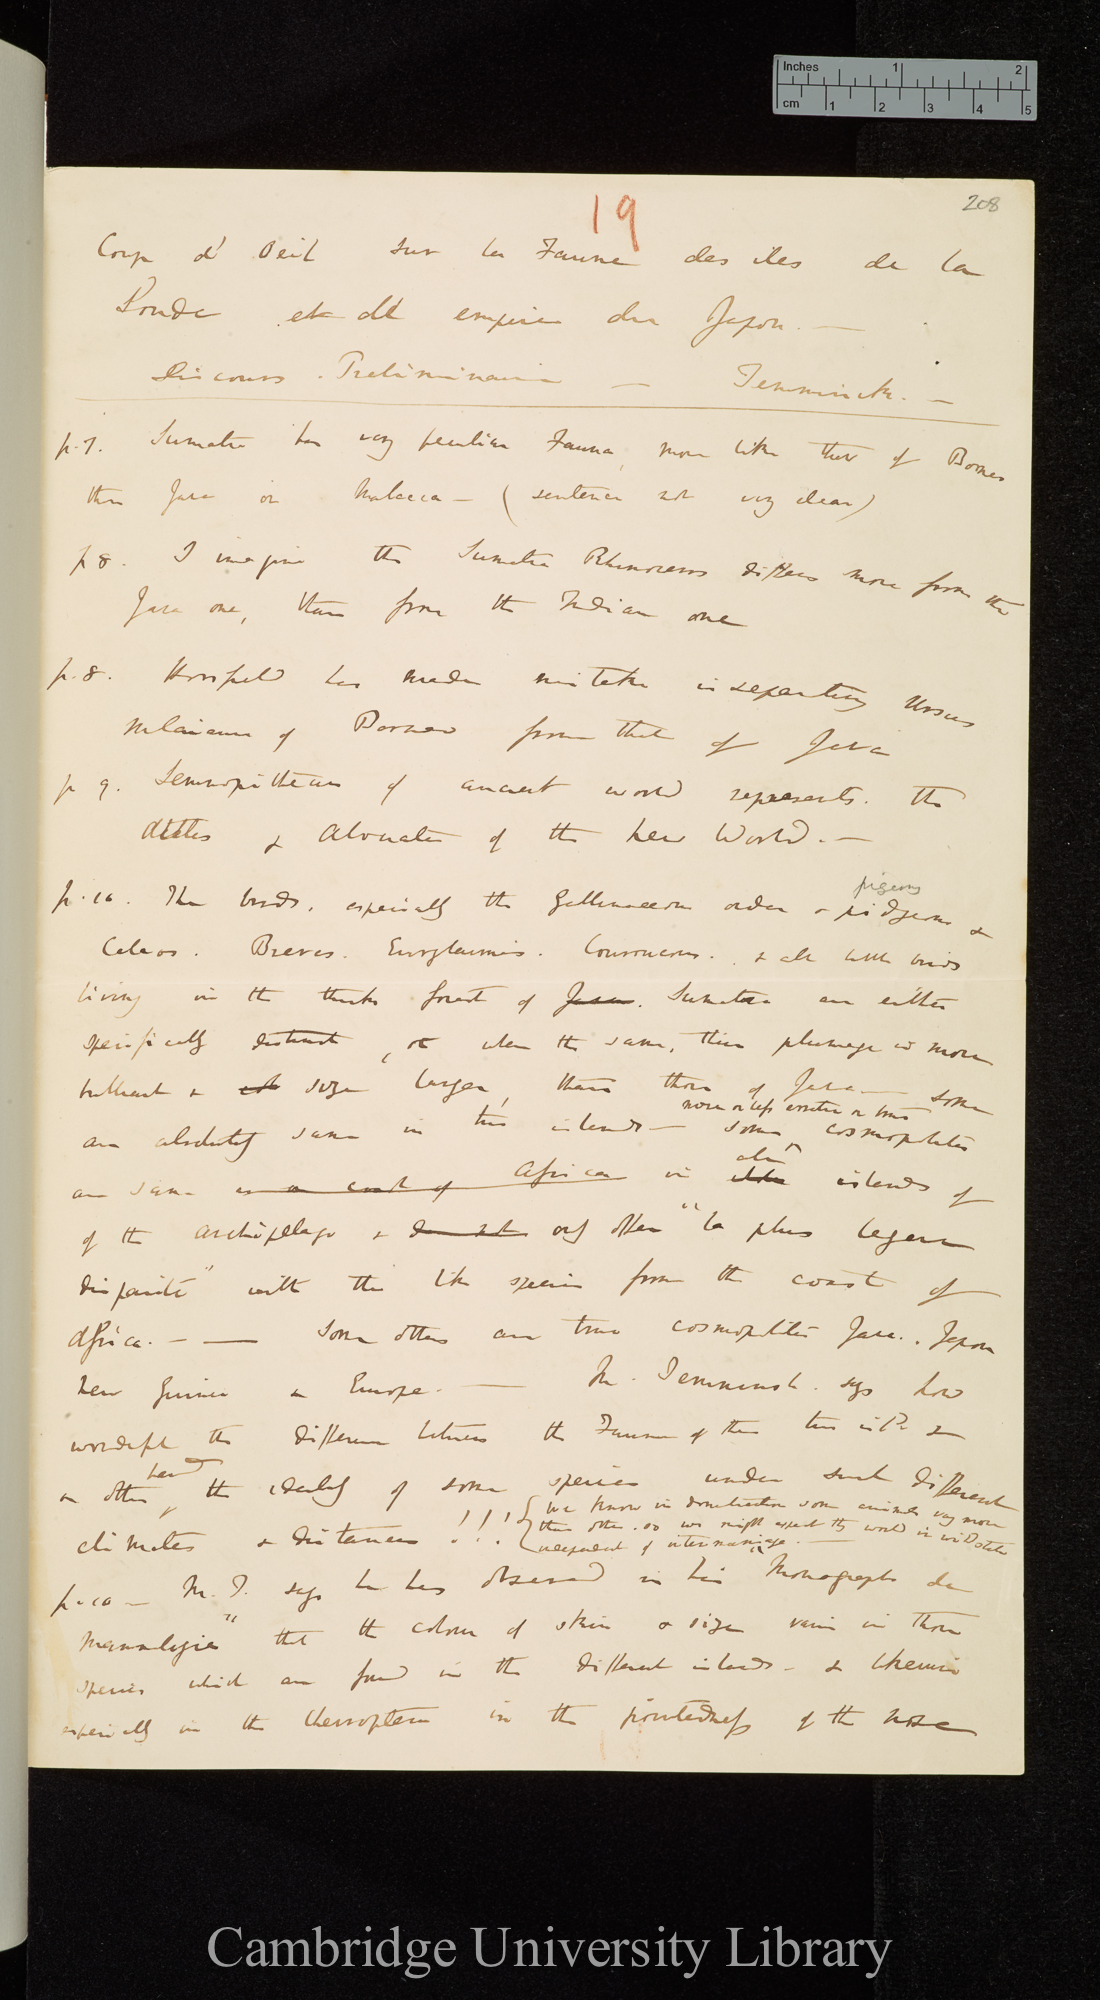 Inches 1 2
cm 1 2 3 4 5
19
208
Coup d' Oeil sur la Faune des iles de la
Sonde et de l' empire du Japon. —
Discours Preliminaire — Temminck. —
p. 7. Sumatra has very peculiar Fauna, more like that of Borneo
than Java or Malacca — (sentence not very clear)
p 8. I imagine the Sumatra Rhinoceros differs more from the
Java one, than from the Indian one
p. 8. Horsfield has made mistake in separating Ursus
malaianus of Borneo from that of Java
p 9. Semnopithecus of ancient world represents the
Ateles & Alouates of the New World. —
pigeons
p. 10. The birds, especially the Gallinaceous order & pidgeons &
Calaos. Breves. Eurylaimes. Couroucous. & all little birds
living in the thick forest of Java. Sumatra are either
specifically distinct, or when the same, their plumage is more
brilliant & size larger, than those of Java — some
are absolutely same in two islands — some cosmopolites
more or less erratic or true
are same as on coast of African in islands of
of the archipelago & do not only offer "la plus legere
disparité" with the like species from the coast of
Africa. — — Some others are true cosmopolites Java., Japon
New Guinea & Europe. — M. Temminck. says how
wonderful the difference between the Faunas of these two isld &
on other hand the identity of some species under such different
climates & distances !!! { we know in domestication some animals vary more
than others. so we might expect they would in wild state
independent of intermarriage. —
p. 10 — M. T. says he has observed in his "Monographs de
Mammalogie" that the colour of skin & size varies in those
species which are found in the different islands — & likewise
especially in the cheiroptera in the pointedness of the nose
Cambridge University Library